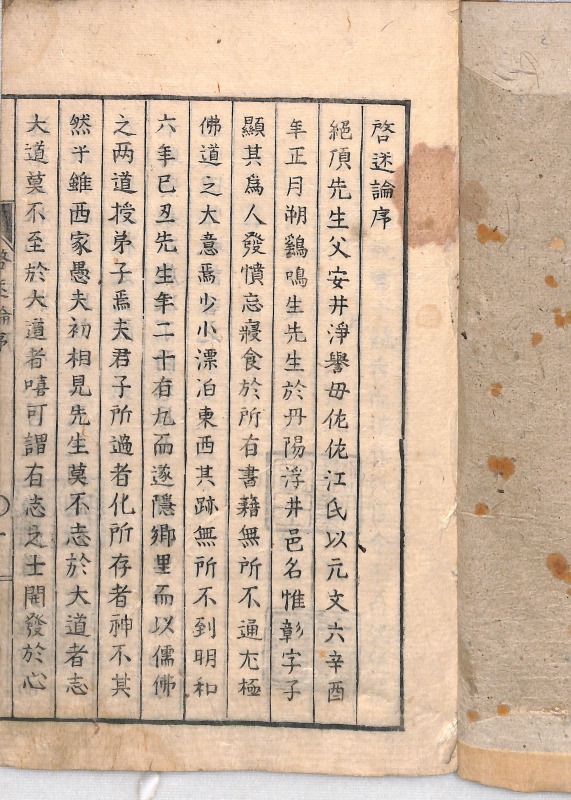 啓迷論序
絕頂先生父安井淨譽母佐佐江氏以元文六辛酉
年正月朔鷄鳴生先生於丹陽浮井邑名惟彰字子
顯其爲人發憤忘寢食於所有書籍無所不通尤極
佛道之大意焉少小漂泊東西其跡無所不到明和
六年己丑先生年二十有九而遂隱鄉里而以儒佛
之两道授弟子焉夫君子所過者化所存者神不其
然乎雖西家愚夫初相見先生莫不志於大道者志
大道莫不至於大道者嘻可謂有志之士開發於心
啓迷論序